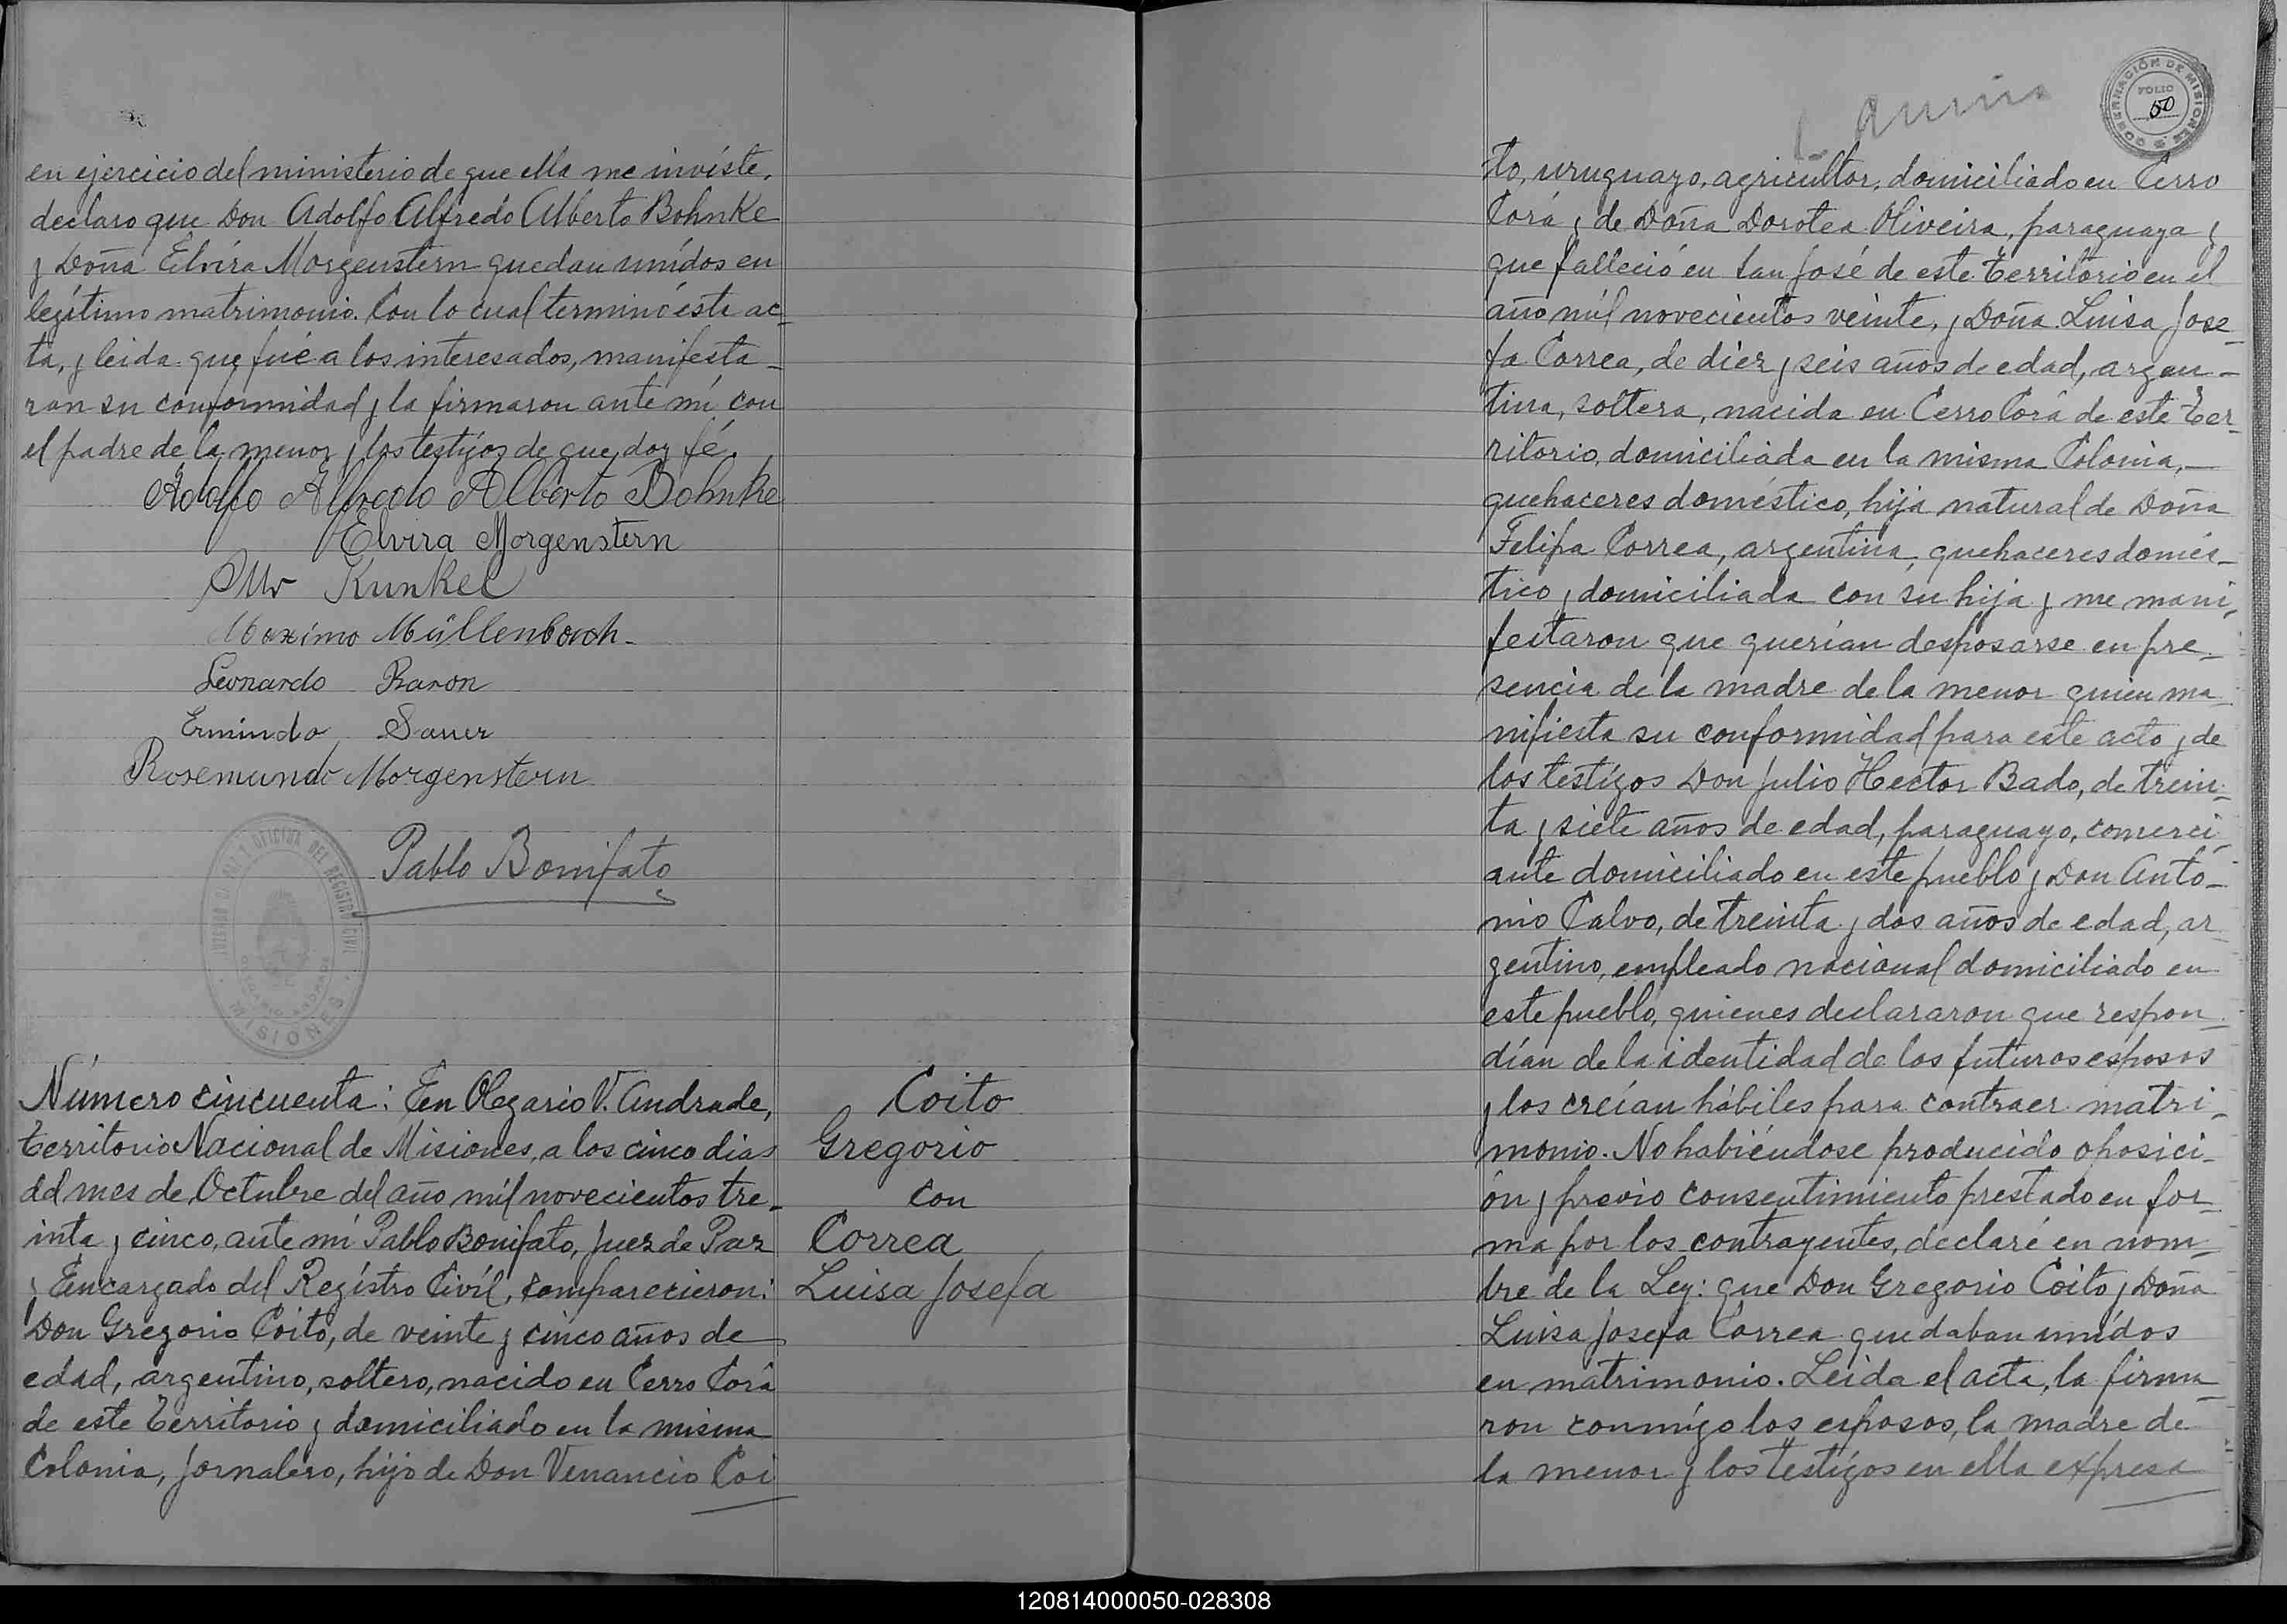 en ejercicio del ministerio de que ella me inviste,
declaro que Don Adolfo Alfredo Alberto Bohnke
y Doña Elvira Morgenstern quedan unídos en
legítimo matrimonio. Con lo cual terminó ésta ac-
ta, y leida que fué a los interesados, manifesta-
ron su conformidad y la firmaron ante mí con
el padre de la menor y los testígos de que doy fé.
Adolfo Alfredo Alberto Bohnke
Elvira Morgenstern
Kunkel
Maximo Müllenbach
Leonardo Baron
Ermindo Sauer
Rosemundo Morgenstern
Pablo Bonifato
OFICINA DEL REGISTRO CIVIL
MISIONES
Número cincuenta: En Olegario V. Andrade,
Territorio Nacional de Misiones, a los cinco dias
del mes de Octubre del año míl novecientos tre-
inta y cinco, ante mí Pablo Bonifato, Juez de Paz
y Encargado del Regístro Civíl, comparecieron:
Don Gregorio Coito, de veinte y cinco años de
edad, argentino, soltero, nacido en Cerro Corá
de este Territorio y domiciliado en la misma
Colonia, jornalero, hijo de Don Venancio Coi
Coito
Gregorio
con
Correa
Luisa Josefa
GOBERNACIÓN DE MISIONES
FOLIO
50
to, uruguayo, agricultor, domiciliado en Cerro
Corá y de Doña Dorotea Oliveira, paraguaya y
que falleció en San José de este Territorio en el
año míl novecientos veinte, y Doña Luisa Jose-
fa Correa, de diez y seis años de edad, argen-
tina, soltera, nacida en Cerro Corá de este Ter-
ritorio, domiciliada en la misma Colonia,-
quehaceres doméstico, hija natural de Doña
Felipa Correa, argentina, quehaceres domés-
tico y domiciliada con su hija y me mani-
festaron que querían desposarse en pre-
sencia de la madre de la menor quien ma-
nifiesta su conformidad para este acto y de
los testígos Don Julio Hector Bado, de trein-
ta y siete años de edad, paraguayo, comerci-
ante domiciliado en este pueblo y Don Anto-
nio Calvo, de treinta y dos años de edad, ar-
gentino, empleado nacional domiciliado en
este pueblo, quienes declararon que respon-
dían de la identidad de los futuros esposos
y los creían hábiles para contraer matri-
monio. No habiéndose producido oposici-
ón y previo consentimiento prestado en for-
ma por los contrayentes, declaré en nom-
bre de la Ley: que Don Gregorio Coito y Doña
Luisa Josefa Correa quedaban unídos
en matrimonio. Leida el acta, la firma-
ron conmígo los esposos, la madre de
la menor y los testígos en ella expresa
120814000050-028308